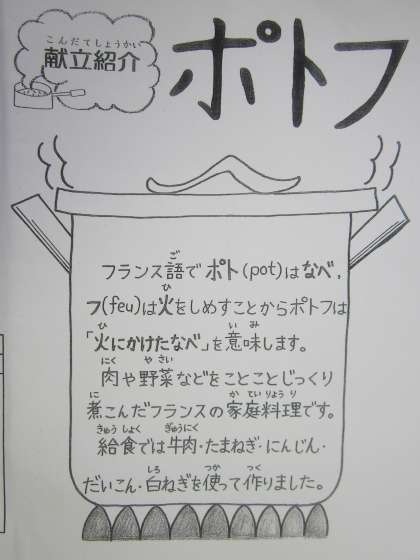 こんだてしょうかい
献立紹介
ポトフ
ご
フランス語でポト(pot)はなべ、
ひ
フ(feu)は火をしめすことからポトフは
ひ い み
「火にかけたなべ」を意味します。
にく や さい
肉や野菜などをことことじっくり
に か てい りょう り
煮こんだフランスの家庭料理です。
きゅう しょく ぎゅうにく
給食では牛肉・たまねぎ・にんじん・
しろ つか つく
だいこん・白ねぎを使って作りました。